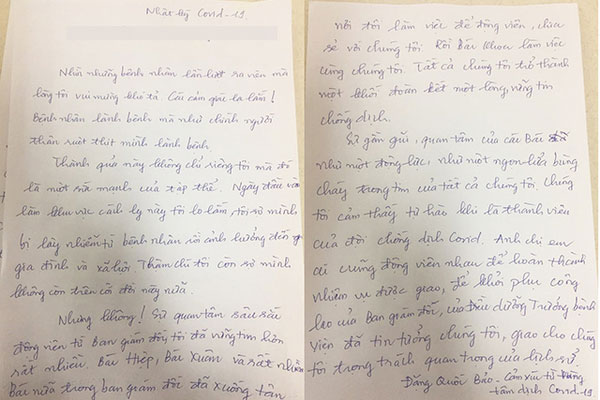 Nhật ký Covid-19
Nhìn những bệnh nhân lần lượt ra viện mà
lòng tôi vui mừng khó tả. Cái cảm giác lạ lắm!
Bệnh nhân lành bệnh mà như chính người
thân ruột thịt mình lành bệnh.
Thành quả này không chỉ riêng tôi mà đó
là một sức mạnh của tập thể. Ngày đầu vào
làm khu vực cách ly này tôi lo lắm, tôi sợ mình
bị lây nhiễm từ bệnh nhân rồi ảnh hưởng đến
gia đình và xã hội. Thậm chí tôi còn sợ mình
không còn trên cõi đời này nữa.
Nhưng không! Sự quan tâm sâu sắc
động viên từ ban giám đốc tôi đã vững tin hơn
rất nhiều. Bác Hiệp, Bác Xuân và rất nhiều
Bác nữa trong ban giám đốc đã xuống tận
nơi tôi làm việc để động viên, chia
sẻ với chúng tôi. Rồi Bác Khoa làm việc
cùng chúng tôi. Tất cả chúng tôi trở thành
một khối đoàn kết một lòng, vững tin
chống dịch.
Sự gần gũi, quan tâm của các Bác
như một động lực, như một ngọn lửa bùng
cháy trong tim của tất cả chúng tôi, chúng
tôi cảm thấy tự hào khi là thành viên
của đội chống dịch Covid. Anh chị em
ai cũng động viên nhau để hoàn thành
nhiệm vụ được giao, để khỏi phụ công
lao của Ban giám đốc, của Điều dưỡng Trưởng bệnh
viện đã tin tưởng chúng tôi, giao cho chúng
tôi trọng trách quan trọng của lịch sử.
Đặng Quốc Bảo - Cảm xúc từ vùng
tâm dịch Covid-19